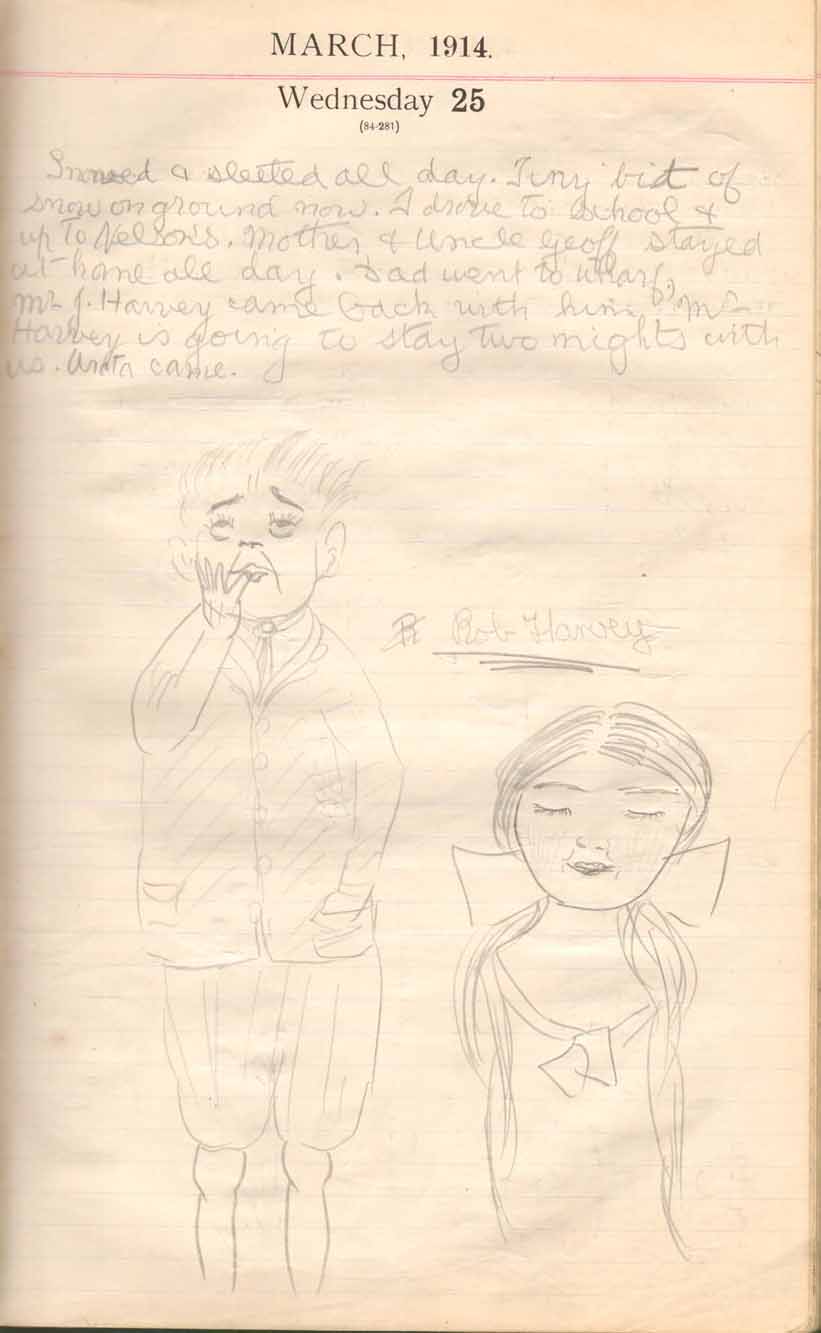 MARCH, 1914.
Wednesday 25
(84-281)
Snowed & sleeted all day. Tiny bit of
snow on ground now. I drove to school &
up to Nelson's. Mother & Uncle Geoff stayed
at home all day. Dad went to wharf,
Mr J. Harvey came back with him. Mr
Harvey is going to stay two nights with
us. Anita came.
R Rob Harvey